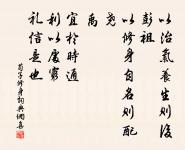 以治氣養生則後
彭祖
以修身自名則配
堯
禹
宜於時通
利以處窮
礼信是也
荀子修身詞典網